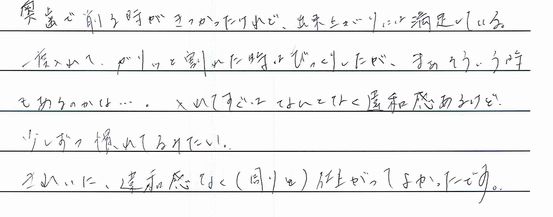 奥歯で削る時がきつかったけれど、出来上がりには満足している。
一度入れて、ガリッと割れた時はびっくりしたが、まあそういう時
もあるのかな…。入れてすぐはなんとなく違和感あるけど
少しずつ慣れてみたい。
きれいに、違和感なく(周りと)仕上がってよかったです。